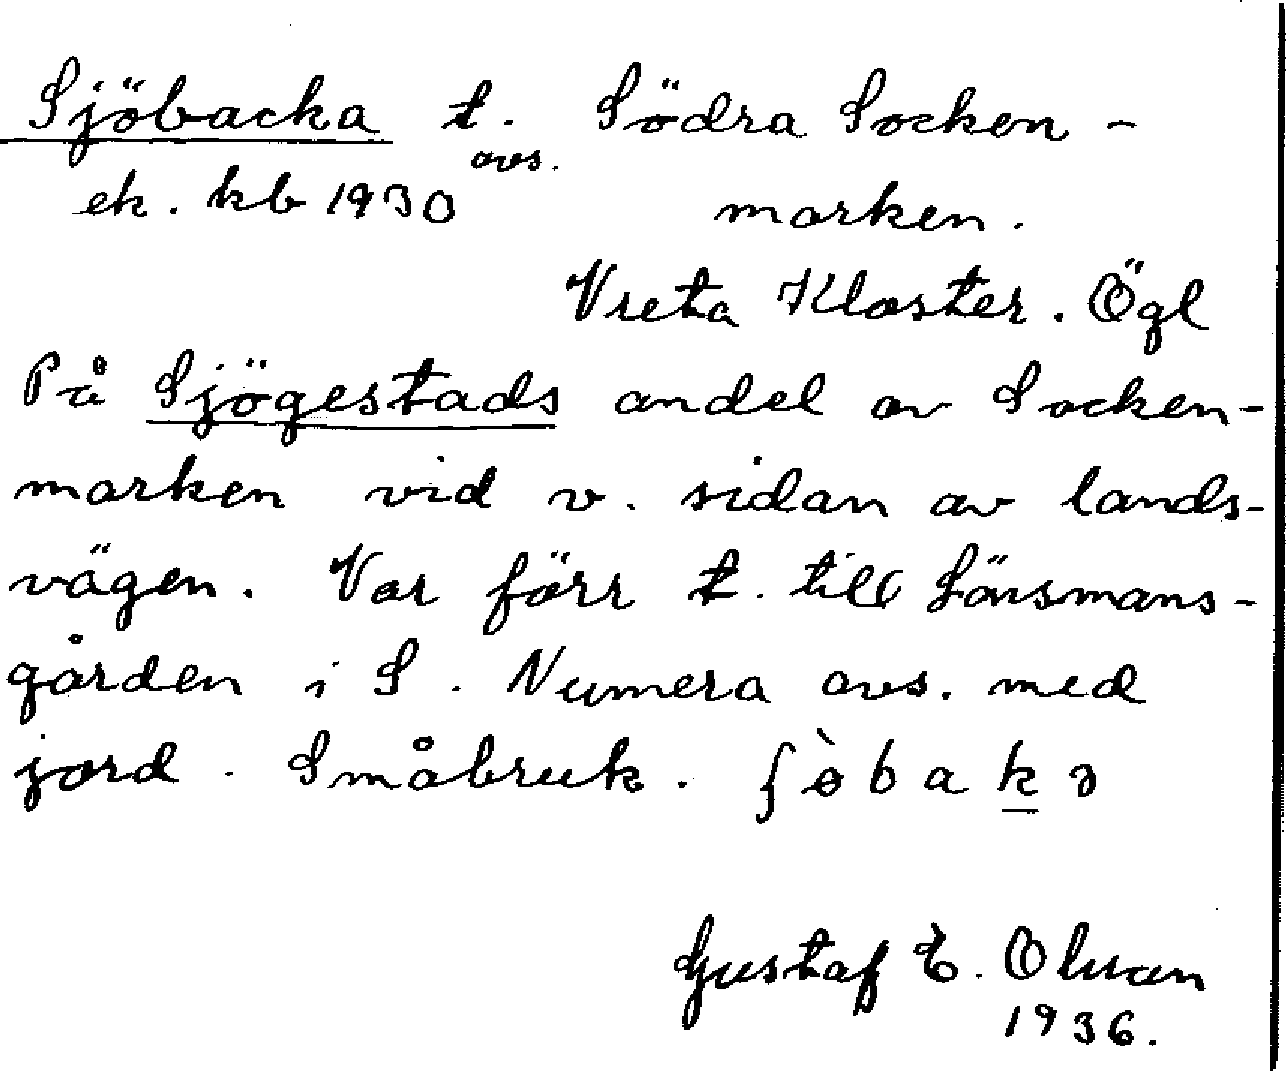 Sjöbacka t. Södra Socken-
avs.
ek. kb 1930 marken.
Vreta Kloster. Ögl
På Sjögestads andel av Socken-
marken vid v. sidan av lands-
vägen. Var förr t. till Länsmans-
gården i S. Numera avs. med
jord. Småbruk. ʃòbakə
Gustaf E. Olsson
1936.